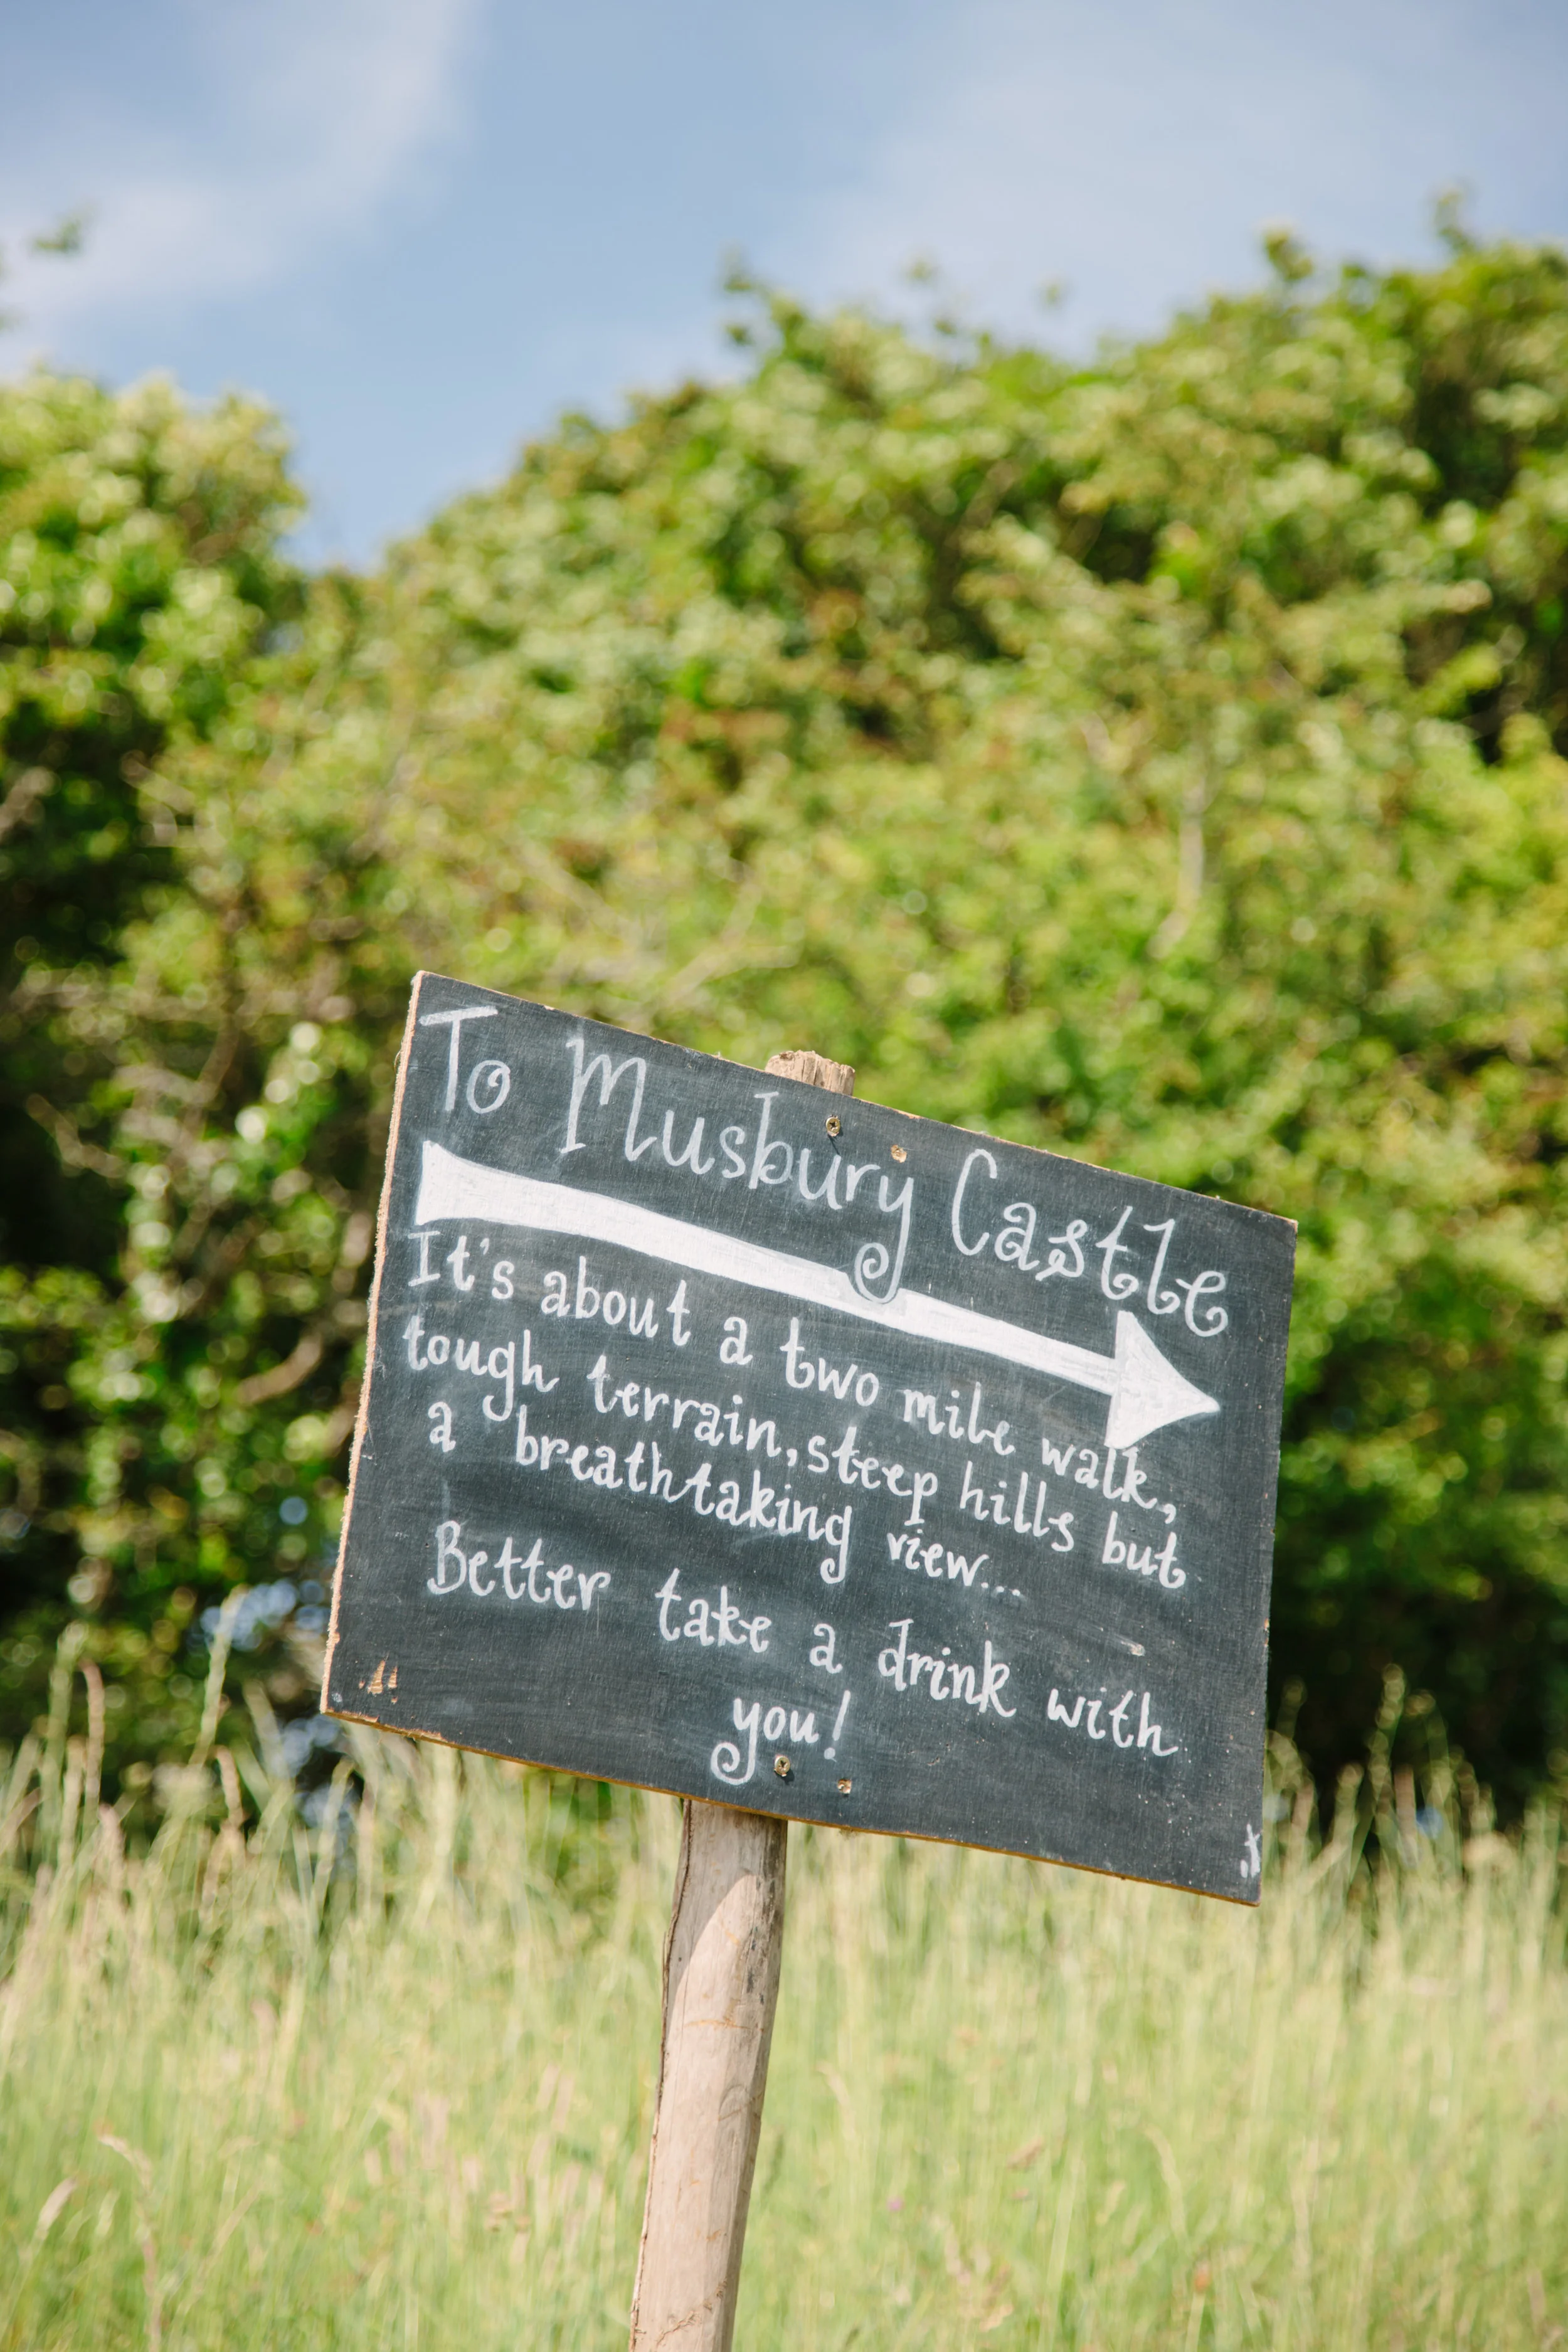 To Musbury Castle
It's about a two mile walk,
tough terrain, steep hills but
a breathtaking view...
Better take a drink with
you!